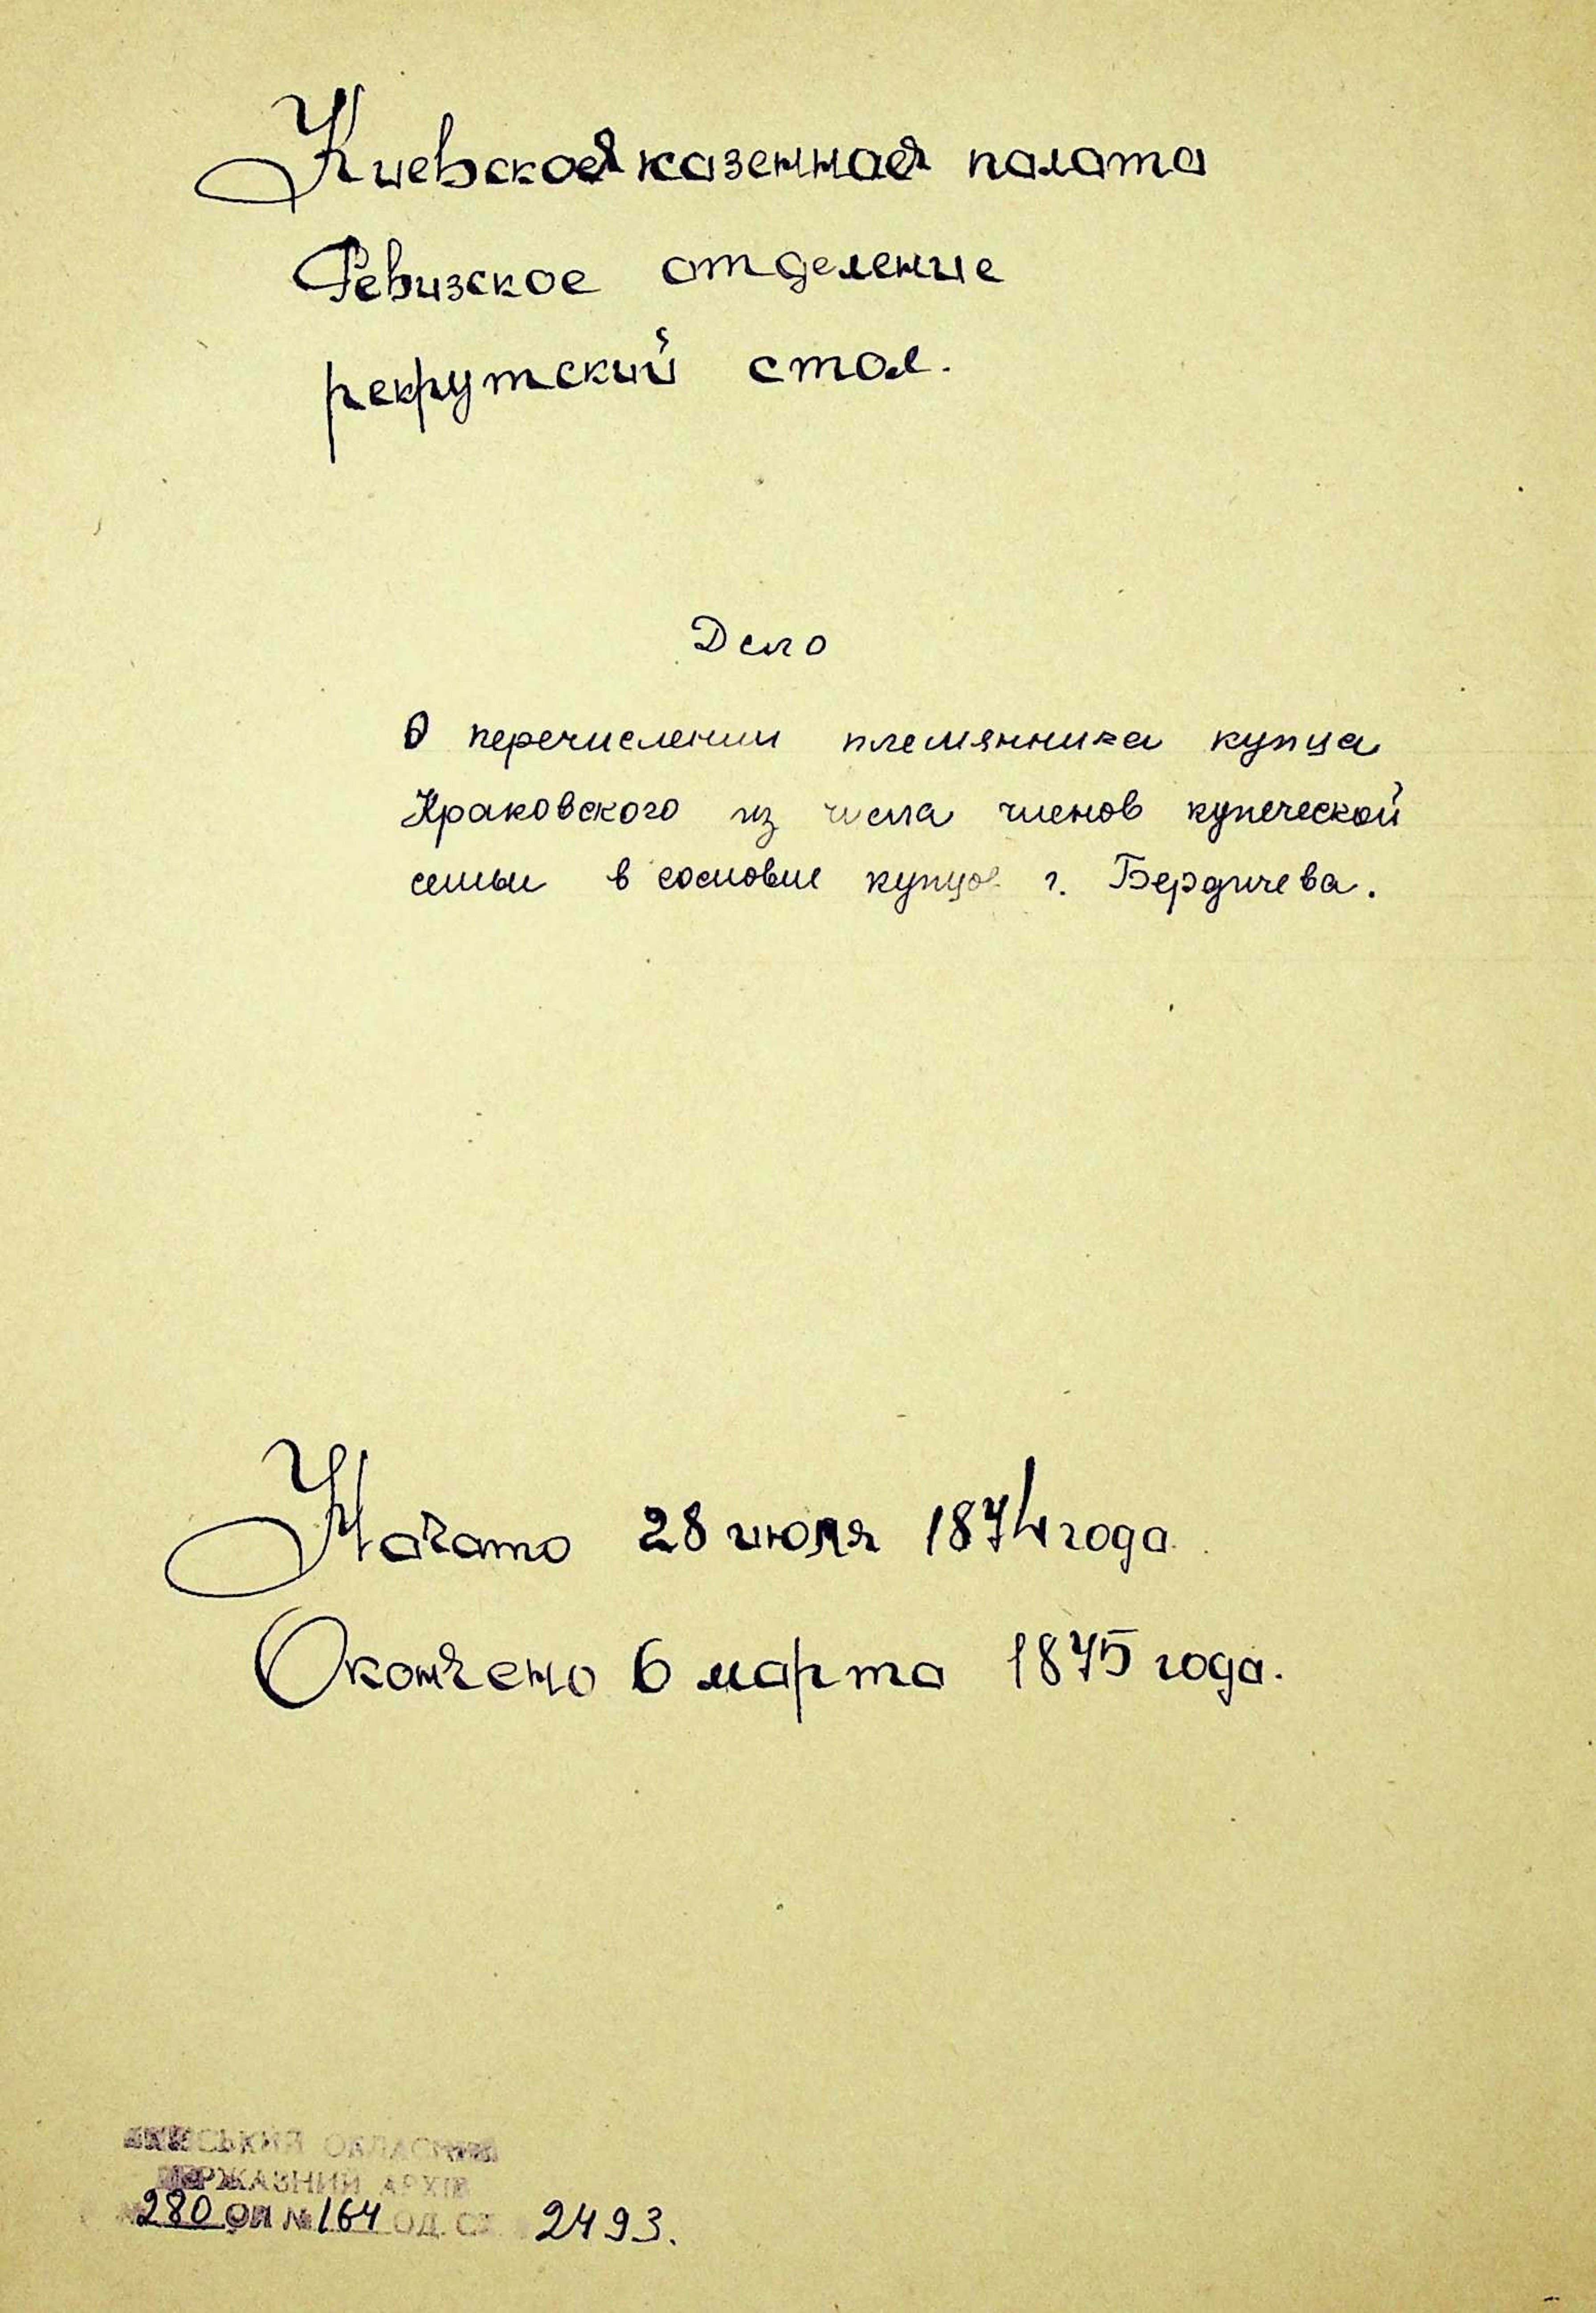 Киевская казенная палата
Ревизское отделение
рекрутский стол.
Дело
О перечислении племянника купца
Краковского из числа членов купеческой
семьи в сословие купцов г. Бердичева.
Начато 28 июля 1874 года.
Окончено 6 марта 1875 года.
КИЇВСЬКИЙ ОБЛАСНИЙ
ДЕРЖАВНИЙ АРХІВ
280 ОП № 164 ОД. СХ. 2493.